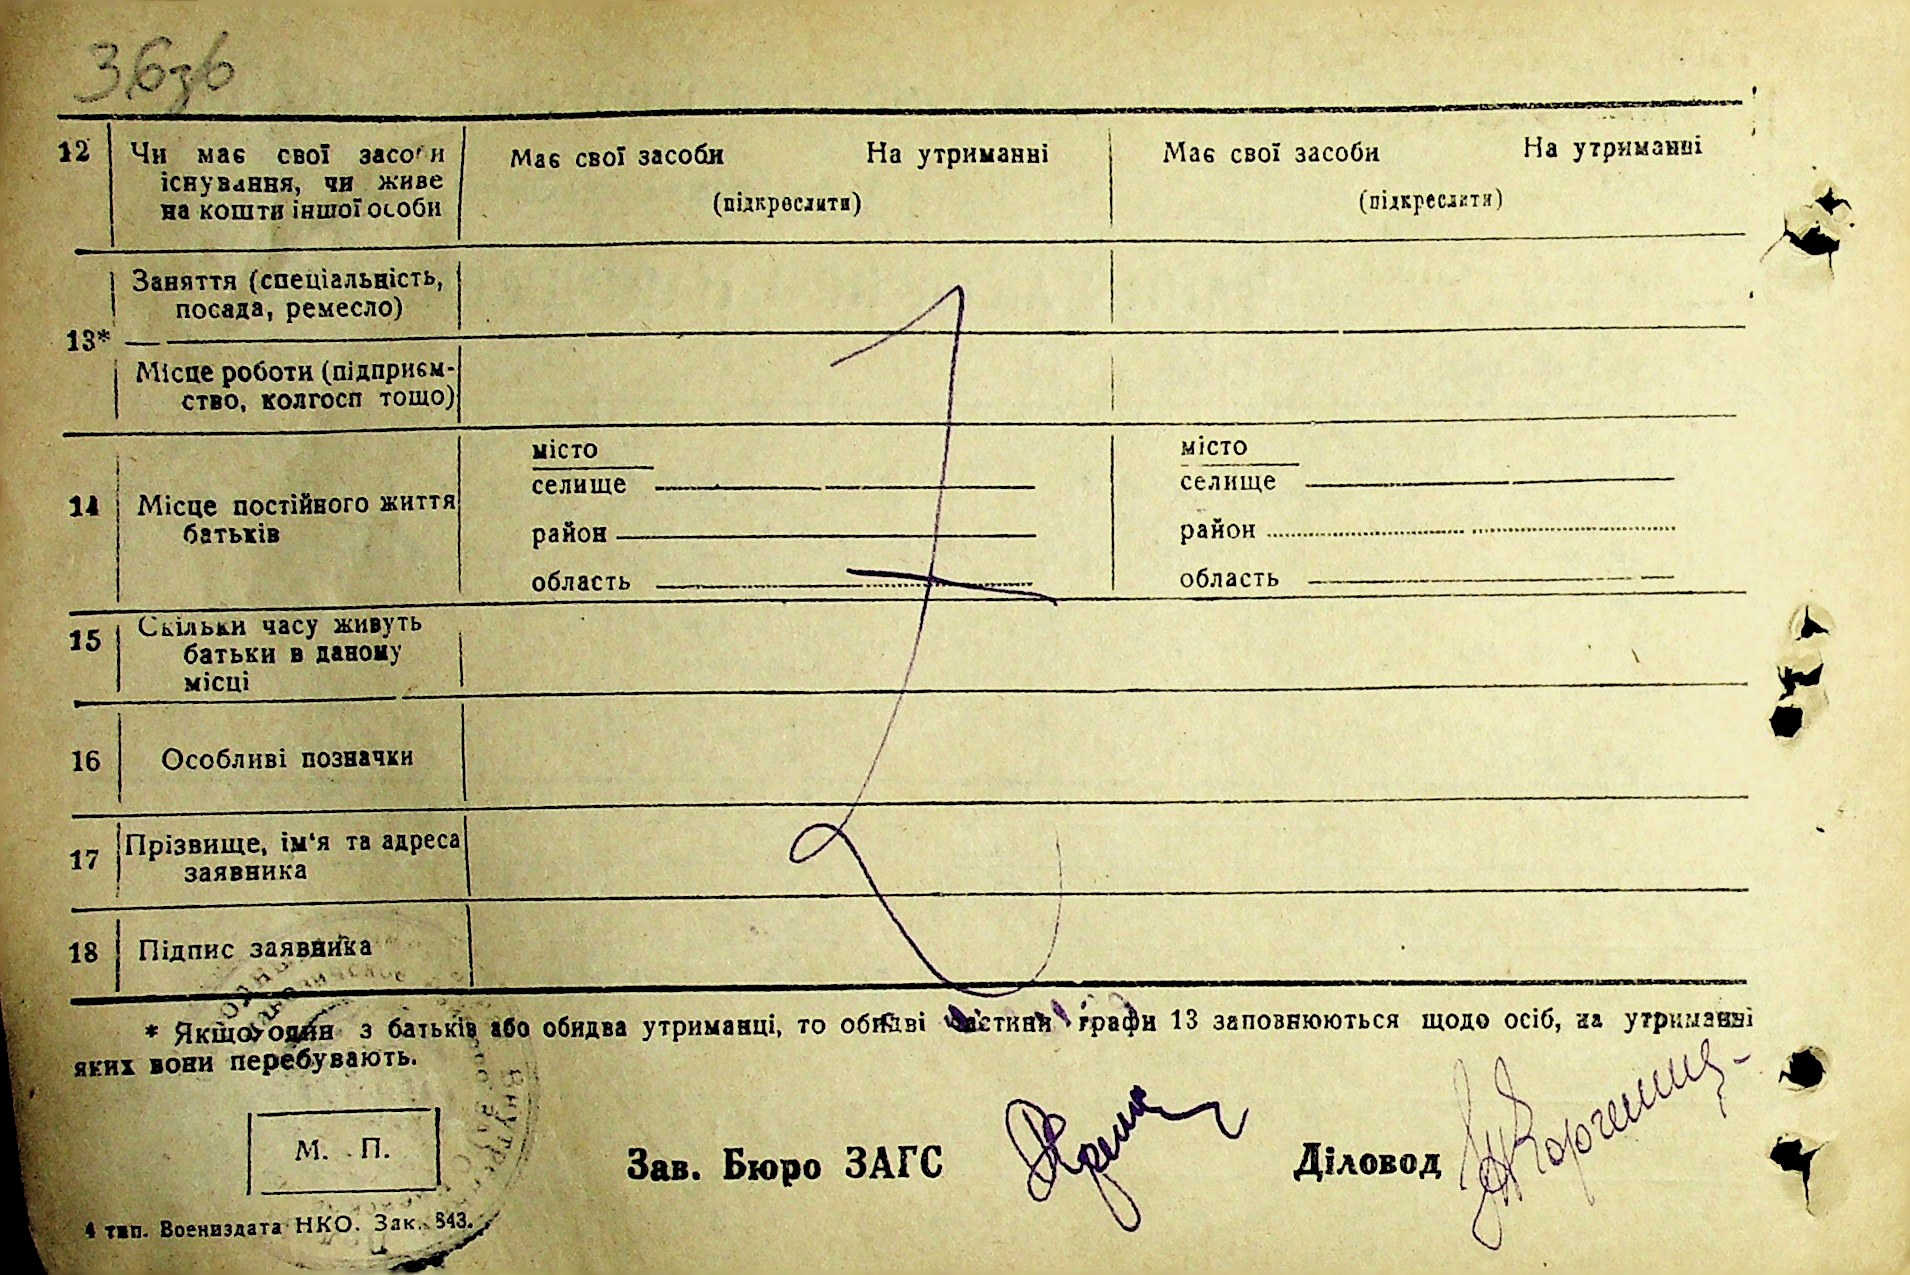 12 Чи має свої засоби Має свої засоби На утриманні Має свої засоби На утриманні
існування, чи живе (підкреслити) (підкреслити)
на кошти іншої особи
Заняття (спеціальність,
посада, ремесло)
13*
Місце роботи (підприєм-
ство, колгосп тощо)
місто місто
селище селище
14 Місце постійного життя
батьків
район район
область область
15 Скільки часу живуть
батьки в даному
місці
16 Особливі позначки
17 Прізвище, ім'я та адреса
заявника
18 Підпис заявника
* Якщо один з батьків або обидва утриманці, то обидві частини графи 13 заповнюються щодо осіб, на утриманні
яких вони перебувають.
М. П.
Зав. Бюро ЗАГС Діловод
4 тип. Воениздата НКО. Зак. 843.